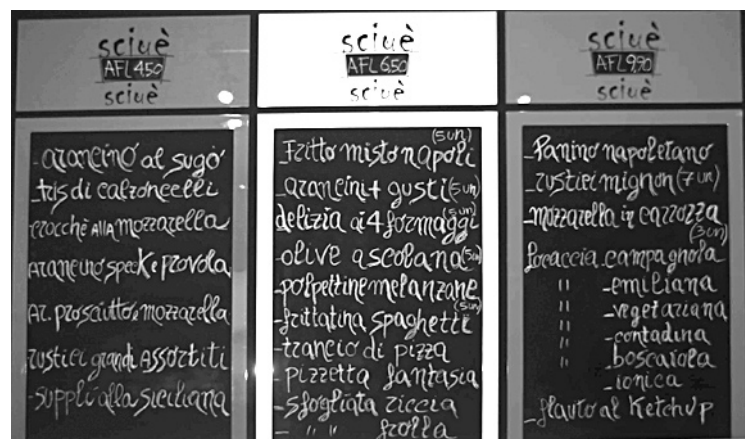 sciuè
AFL 4.50
sciuè
-arancino al sugo
-tris di calzoncelli
crocchè alla mozzarella
Arancino speck e provola
Ar. prosciutto e mozzarella
rustici grandi ASSortiti
-supplì alla siciliana
sciuè
AFL 6.50
sciuè
-Fritto misto napoli (5 un)
-arancini 4 gusti (5 un)
delizia ai 4 formaggi (5 un)
-olive ascolana (5 un)
-polpettine melanzane
-frittatina spaghetti (5 un)
-trancio di pizza
-pizzetta fantasia
-sfogliata riccia
- " " frolla
sciuè
AFL 9,90
sciuè
-Panino napoletano
-rustici mignon (7 un)
-mozzarella in carrozza
(3 un)
focaccia campagnola
" -emiliana
" -vegetariana
" -contadina
" -boscaiola
-ionica
-flauto al Ketchup